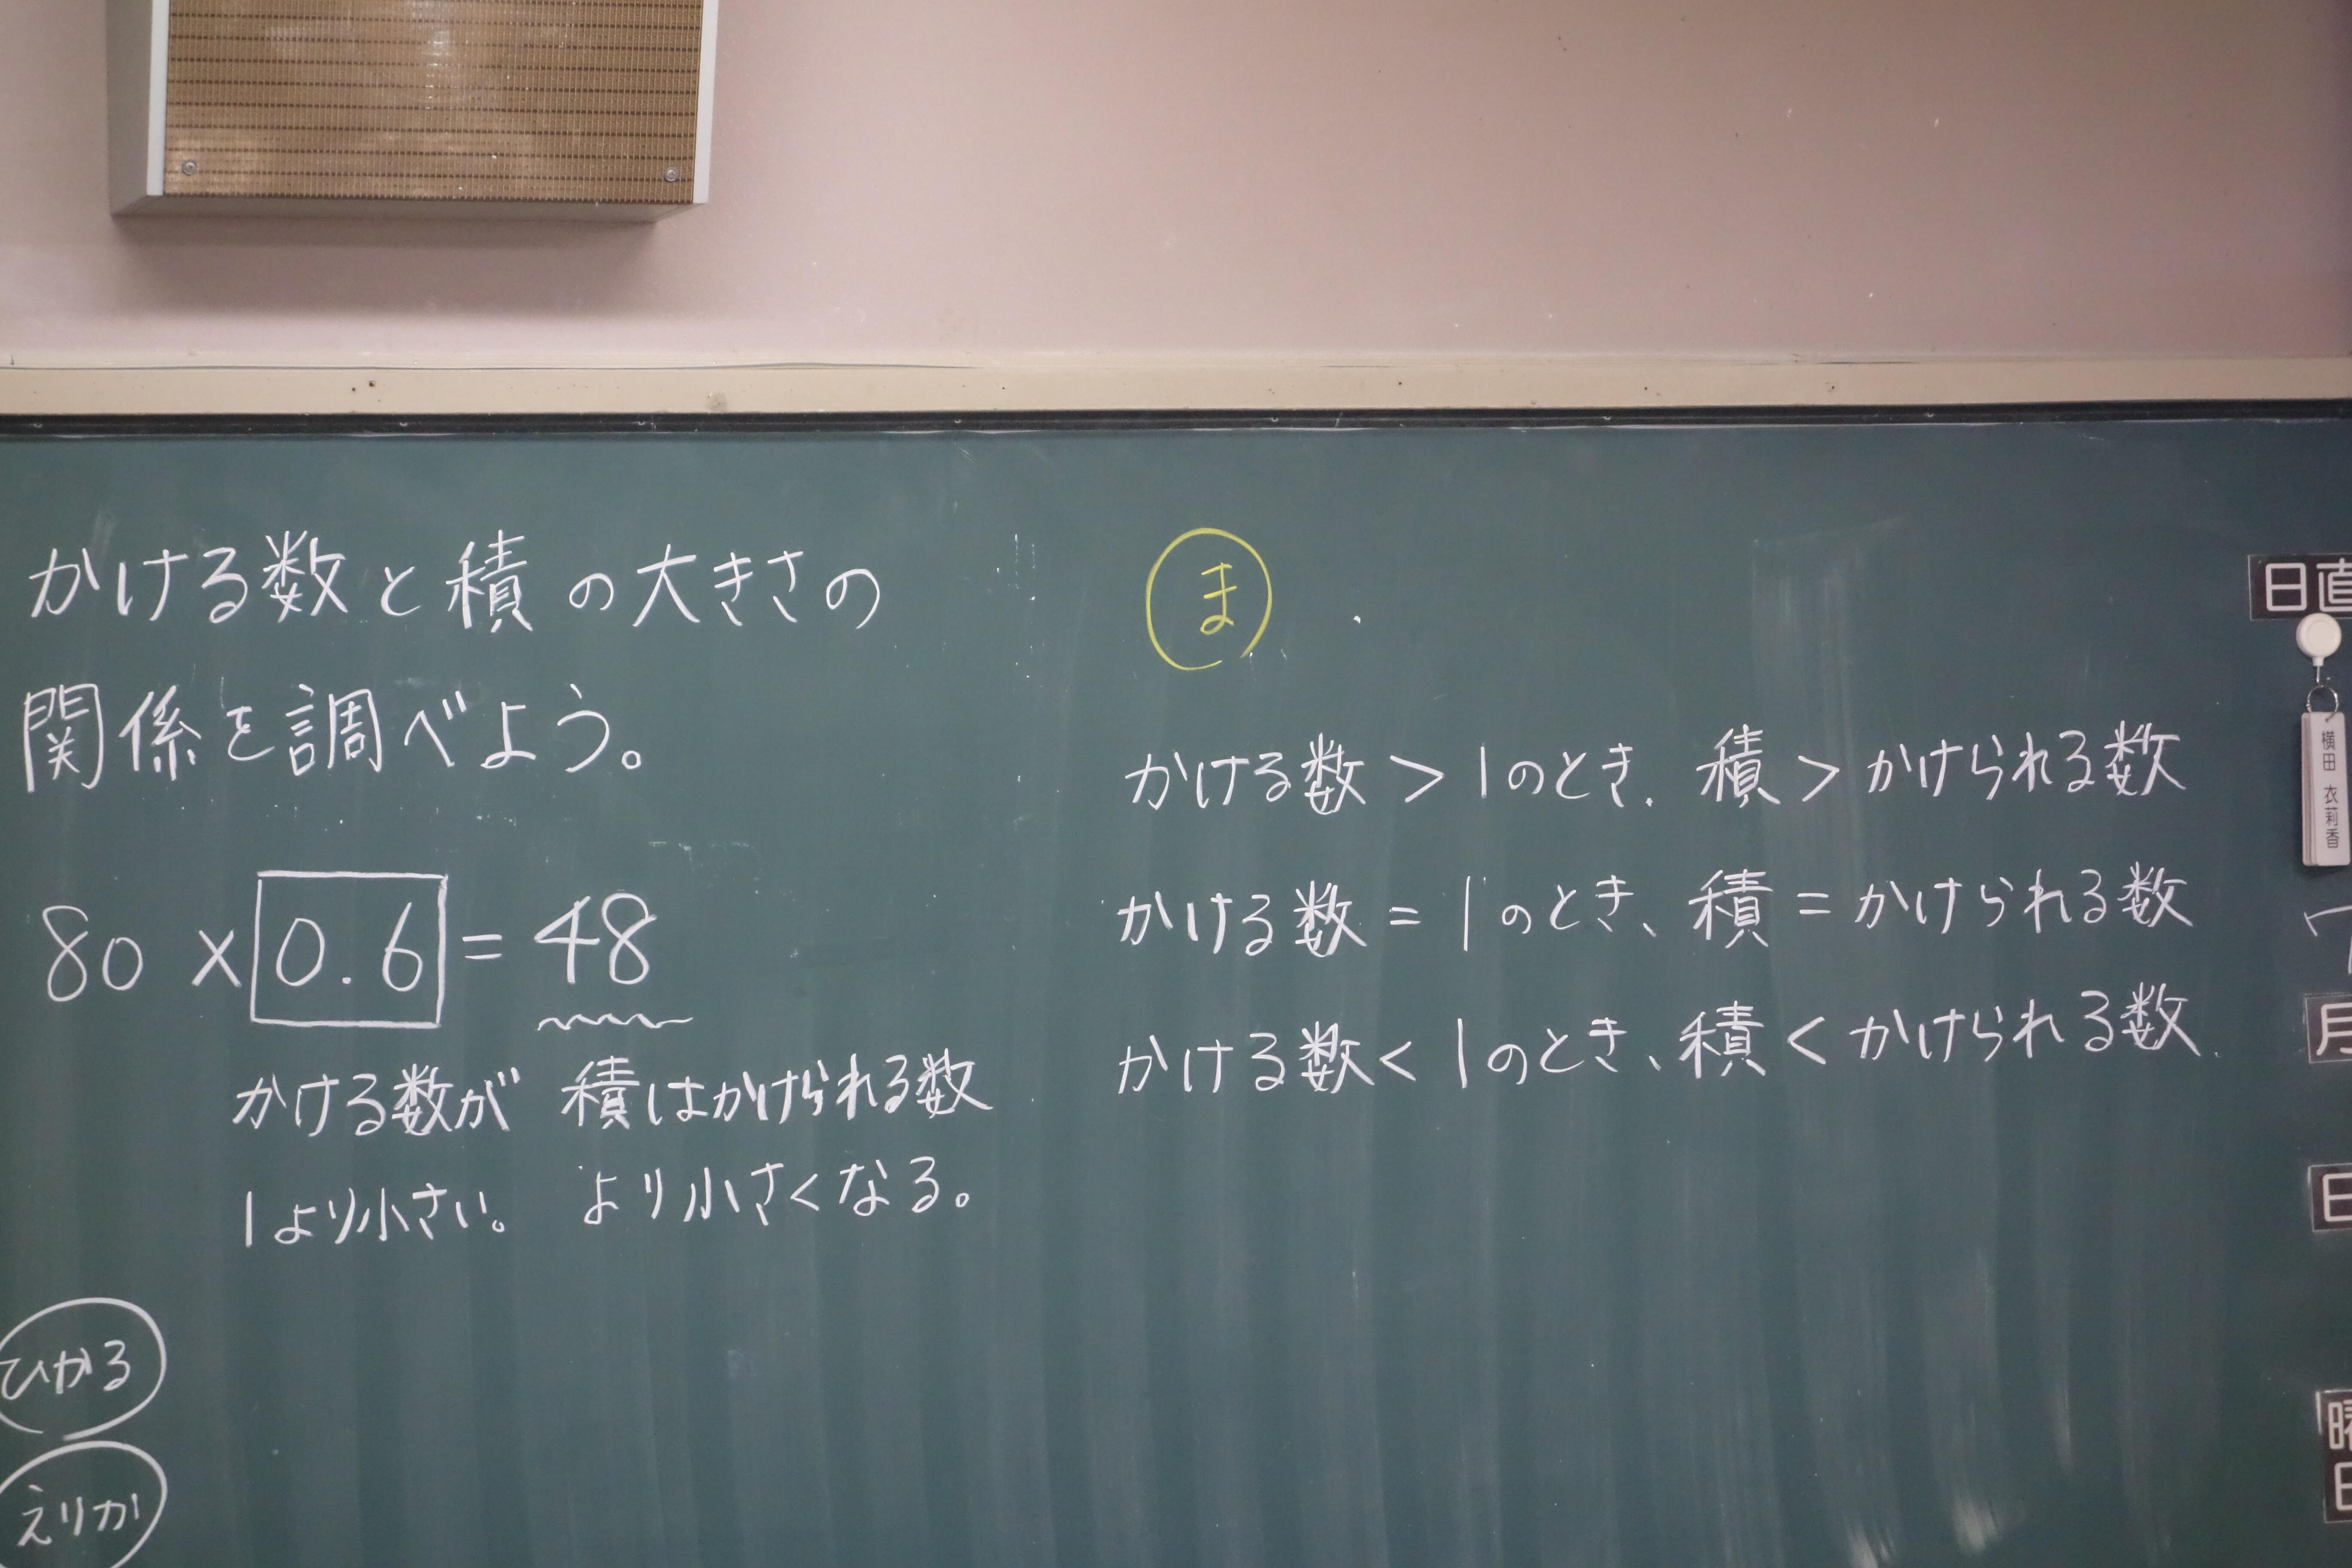 かける数と積の大きさの
関係を調べよう。
80×0.6=48
かける数が
1より小さい。
積はかけられる数
より小さくなる。
ひかる
えりか
ま
かける数>1のとき、積>かけられる数
かける数=1のとき、積=かけられる数
かける数<1のとき、積<かけられる数
日直
横田 衣莉香
月
日
曜
日